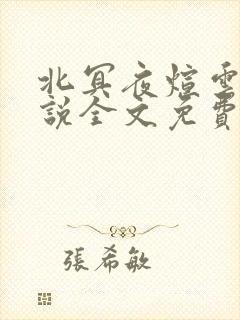 北冥夜煊雲
說全文免費
張希敏